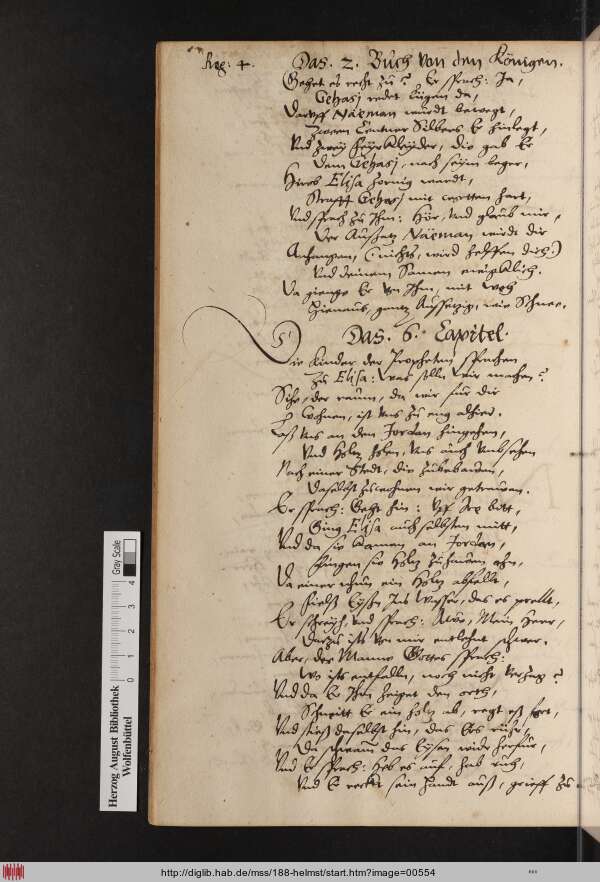 Reg: 4. Das. 2. Buch von den Königen.
Gehet es recht zu? Er sprach: Ja,
Gehasj redet lügen da,
Darauff Naëman wurdt bewegt,
Zween Centner Silbers Er hinlegt,
Vnd zweÿ feyrkleyder, die gab Er
Dem Gehasj, nach seim beger,
Elisa zornig wardt,
Strafft Gehasj mit wortten hart,
Vnd sprach zu Ihm: Hör, Vnd glaub mir,
Der Aussatz Naëman wirdt dir
Anhangen, (nichts, wird helffen dich:)
Vnd deinem Samen ewigklich.
Da gienge Er von Ihm, mit
Hienaus, gantz Aussetzig, wie Schnee.
Das. 6. Capitel.
Die Kinder der Propheten sprachen
zu Elisa: Was solln wir machen?
Sihe, der raum, da wir für dir
wohnen, ist vns zu eng alhier.
Laß vns an den Jordan hingehen,
Vnd Holtz holen, vns auch vmbsehen
Nach einer Stedt, die zubebawen,
Daselbst zu wohnen wir getrawen.
Er sprach: Geht hin: Vff bitt,
Ging Elisa auch selbsten mitt,
Vnd da sie kamen an Jordan,
fiengen sie Holtz zuhawen ahn,
Da einer nhun ein Holtz abfellt,
Eysen Ins Wasser, das es prellt,
Er schreyh, Vnd sprach: Awe, Mein Herr,
Darzu ists von mir entlehnt schwer.
Aber, der Manne Gottes sprach:
Wo ists entfallen, noch nicht
Vnd da Er Ihm zeiget den orth,
Schneitt Er ein holtz ab, fort,
Vnd stieß daselbst hin, das
Da schwam das Eysen wider herfür,
Vnd Er sprach: Heb es auf,
Vnd Er reckt sein Handt auß, grieff zu
Herzog August Bibliothek
Wolfenbüttel
Gray Scale
0 1 2 3 4
http://diglib.hab.de/mss/188-helmst/start.htm?image=00554